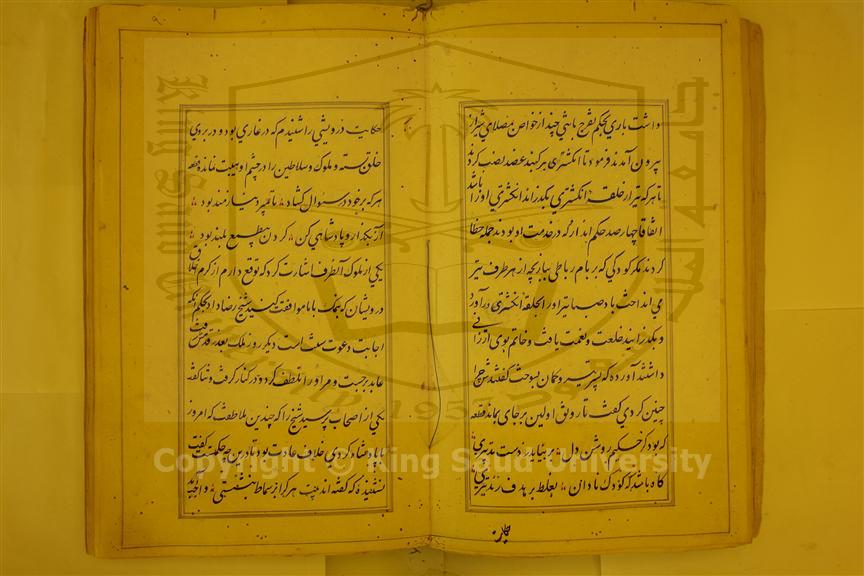 داشت باری بحکم تفرج باتنی چند از خواص مصلای شیراز
بیرون آمد بفرمود تا انگشتری بر گنبد عضد نصب کردند
تا هرکه تیر از حلقه انگشتری بگذراند انگشتری اورا باشد
اتفاقا چهارصد حکم انداز که در خدمت او بودند جمله خطا
کردند مگر کودکی که بر بام رباطی ببازیچه از هر طرف تیر
می انداخت باد صبا تیر او از حلقه انگشتری در آورد
و بگذرانید خلعت و نعمت یافت و خاتم بوی ارزانی
داشتند آورده که پسر تیر و کمان بسوخت گفتندش چرا
چنین کردی گفت تا رونق اولین بر جای بماند قطعه
که بود کز حکیم روشن دل بر نیاید درست تدبیری
گاه باشد که کودک نادان بغلط بر هدف زند تیری
حکایت درویشی را شنیدم که در غاری بود و در بروی
خلق بسته و ملوک و سلاطین را در چشم او هیبت نمانده قطعه
هرکه بر خود در سوال گشاد تا بمیرد نیازمند بود
آز بگذار و پادشاهی کن گردن بیطمع بلند بود
یکی از ملوک آنطرف اشارت کرد که توقع دارم از کرم اخلاق
درویشان که بنمک با ما موافقت کنند شیخ رضا داد بحکم آنکه
اجابت دعوت سنت است دیگر روز ملک بعذر قدمش رفت
عابد برجست و مر اورا تلطف کرد و در کنار گرفت و ثنا گفت
یکی از اصحاب پرسید شیخ را که چندین ملاطفت که امروز
با پادشاه کردی خلاف عادت بود تا درین چه حکمتست گفت
نشنیده که گفته اند بیت هرکرا بر سماط بنشستی واجب آمد
Copyright © King Saud University
King Saud University
1957